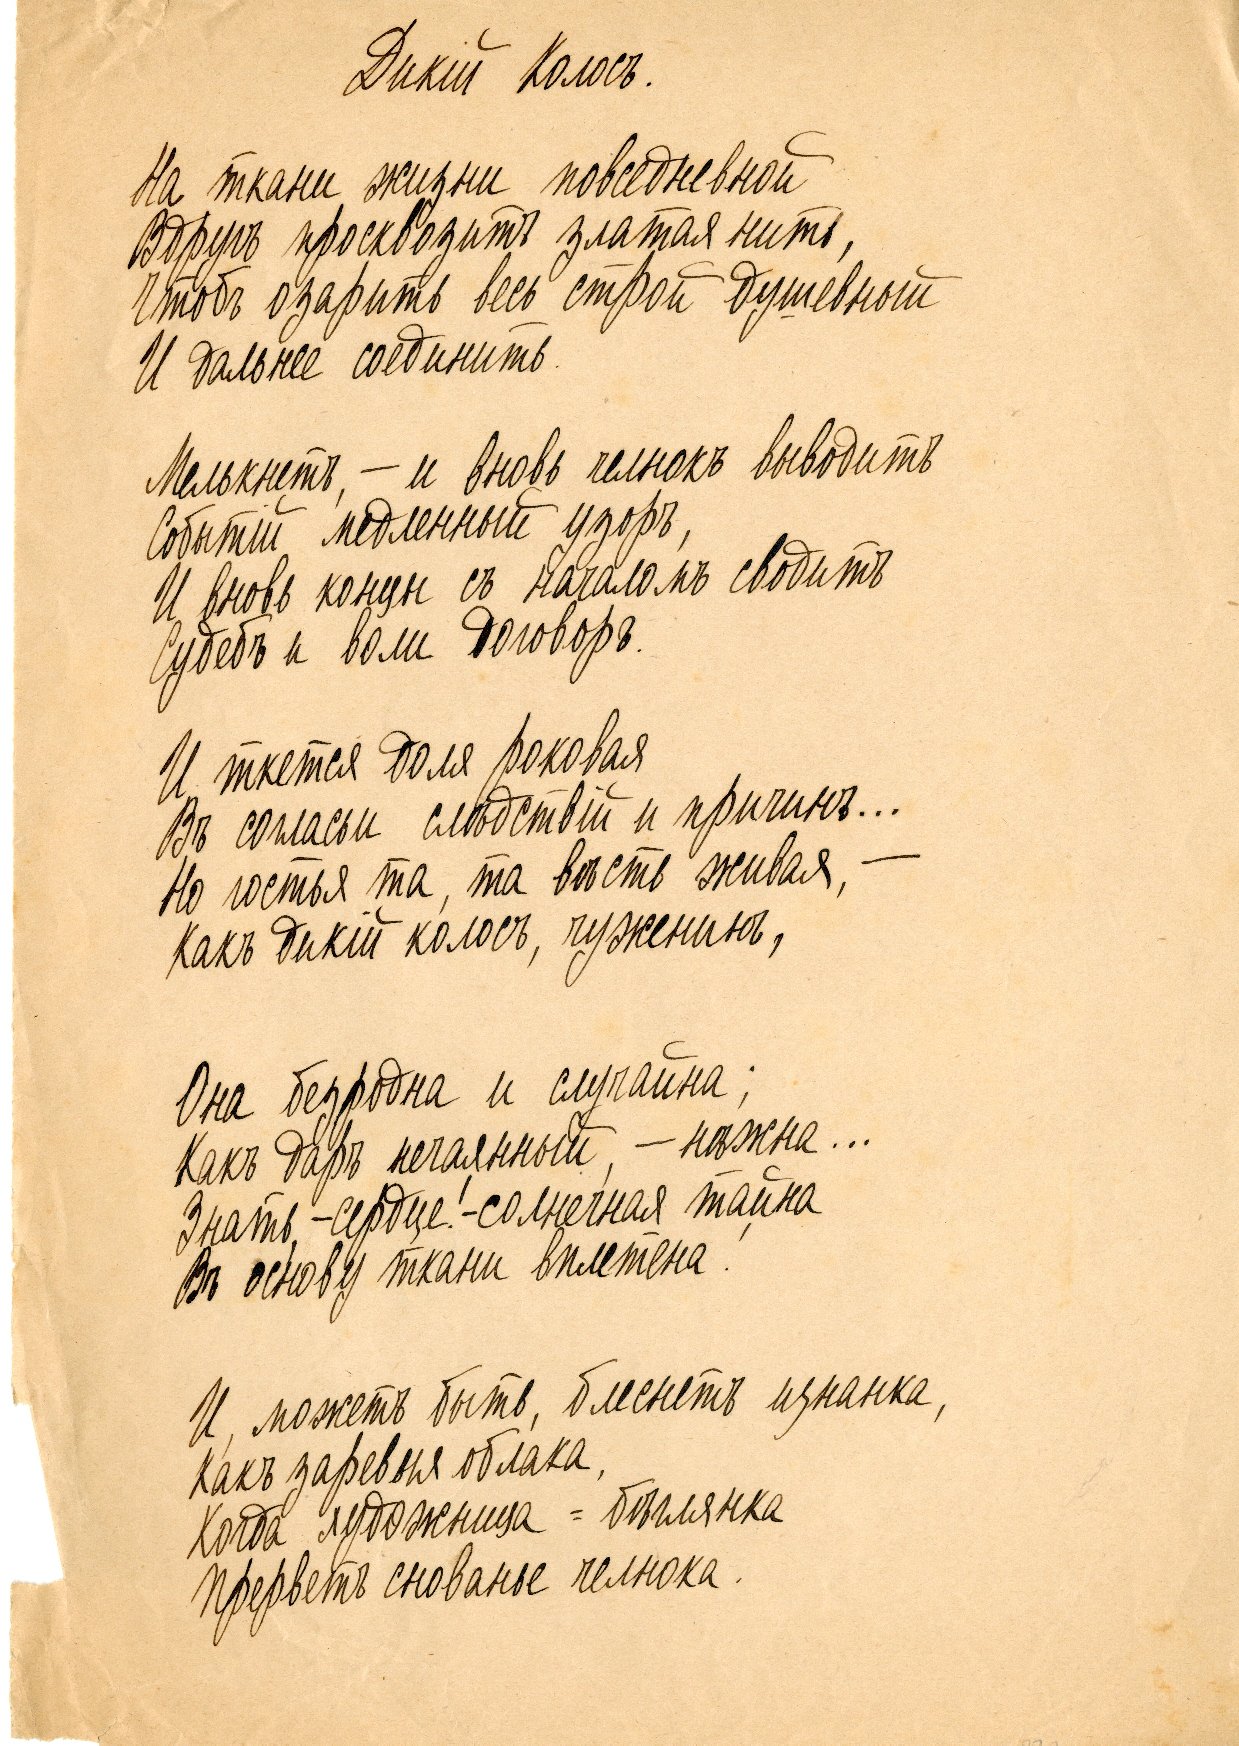 Дикій Колосъ.
На ткани жизни повседневной
Вдругъ просквозитъ златая нить,
Чтобъ озарить весь строй душевный
И дальнее соединить.
Мелькнетъ, — и вновь челнокъ выводитъ
Событій медленный узоръ,
И вновь концы съ началомъ сводитъ
Судебъ и воли договоръ.
И ткется доля роковая
Въ согласьи слѣдствій и причинъ...
Но гостья та, та вѣсть живая, —
Какъ дикій колосъ, чуженинъ,
Она безродна и случайна;
Какъ даръ нечаянный, — нѣжна...
Знать, – сердце! – солнечная тайна
Въ основу ткани вплетена!
И, можетъ быть, блеснетъ изнанка,
Какъ заревыя облака,
Когда художница = бѣглянка
Прерветъ снованье челнока.